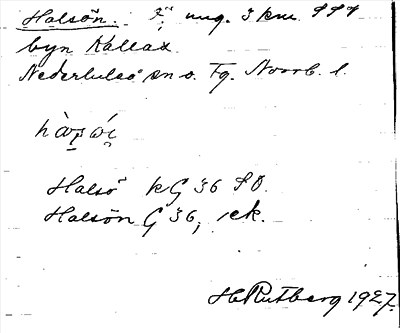 Halsön. Ö ung. 3 km. SSV
byn Kallax.
Nederluleå sn o. Tg. Norrb. l.
Halsö kG 36 SO.
Halsön G 36, ek.
H Rutberg 1927.